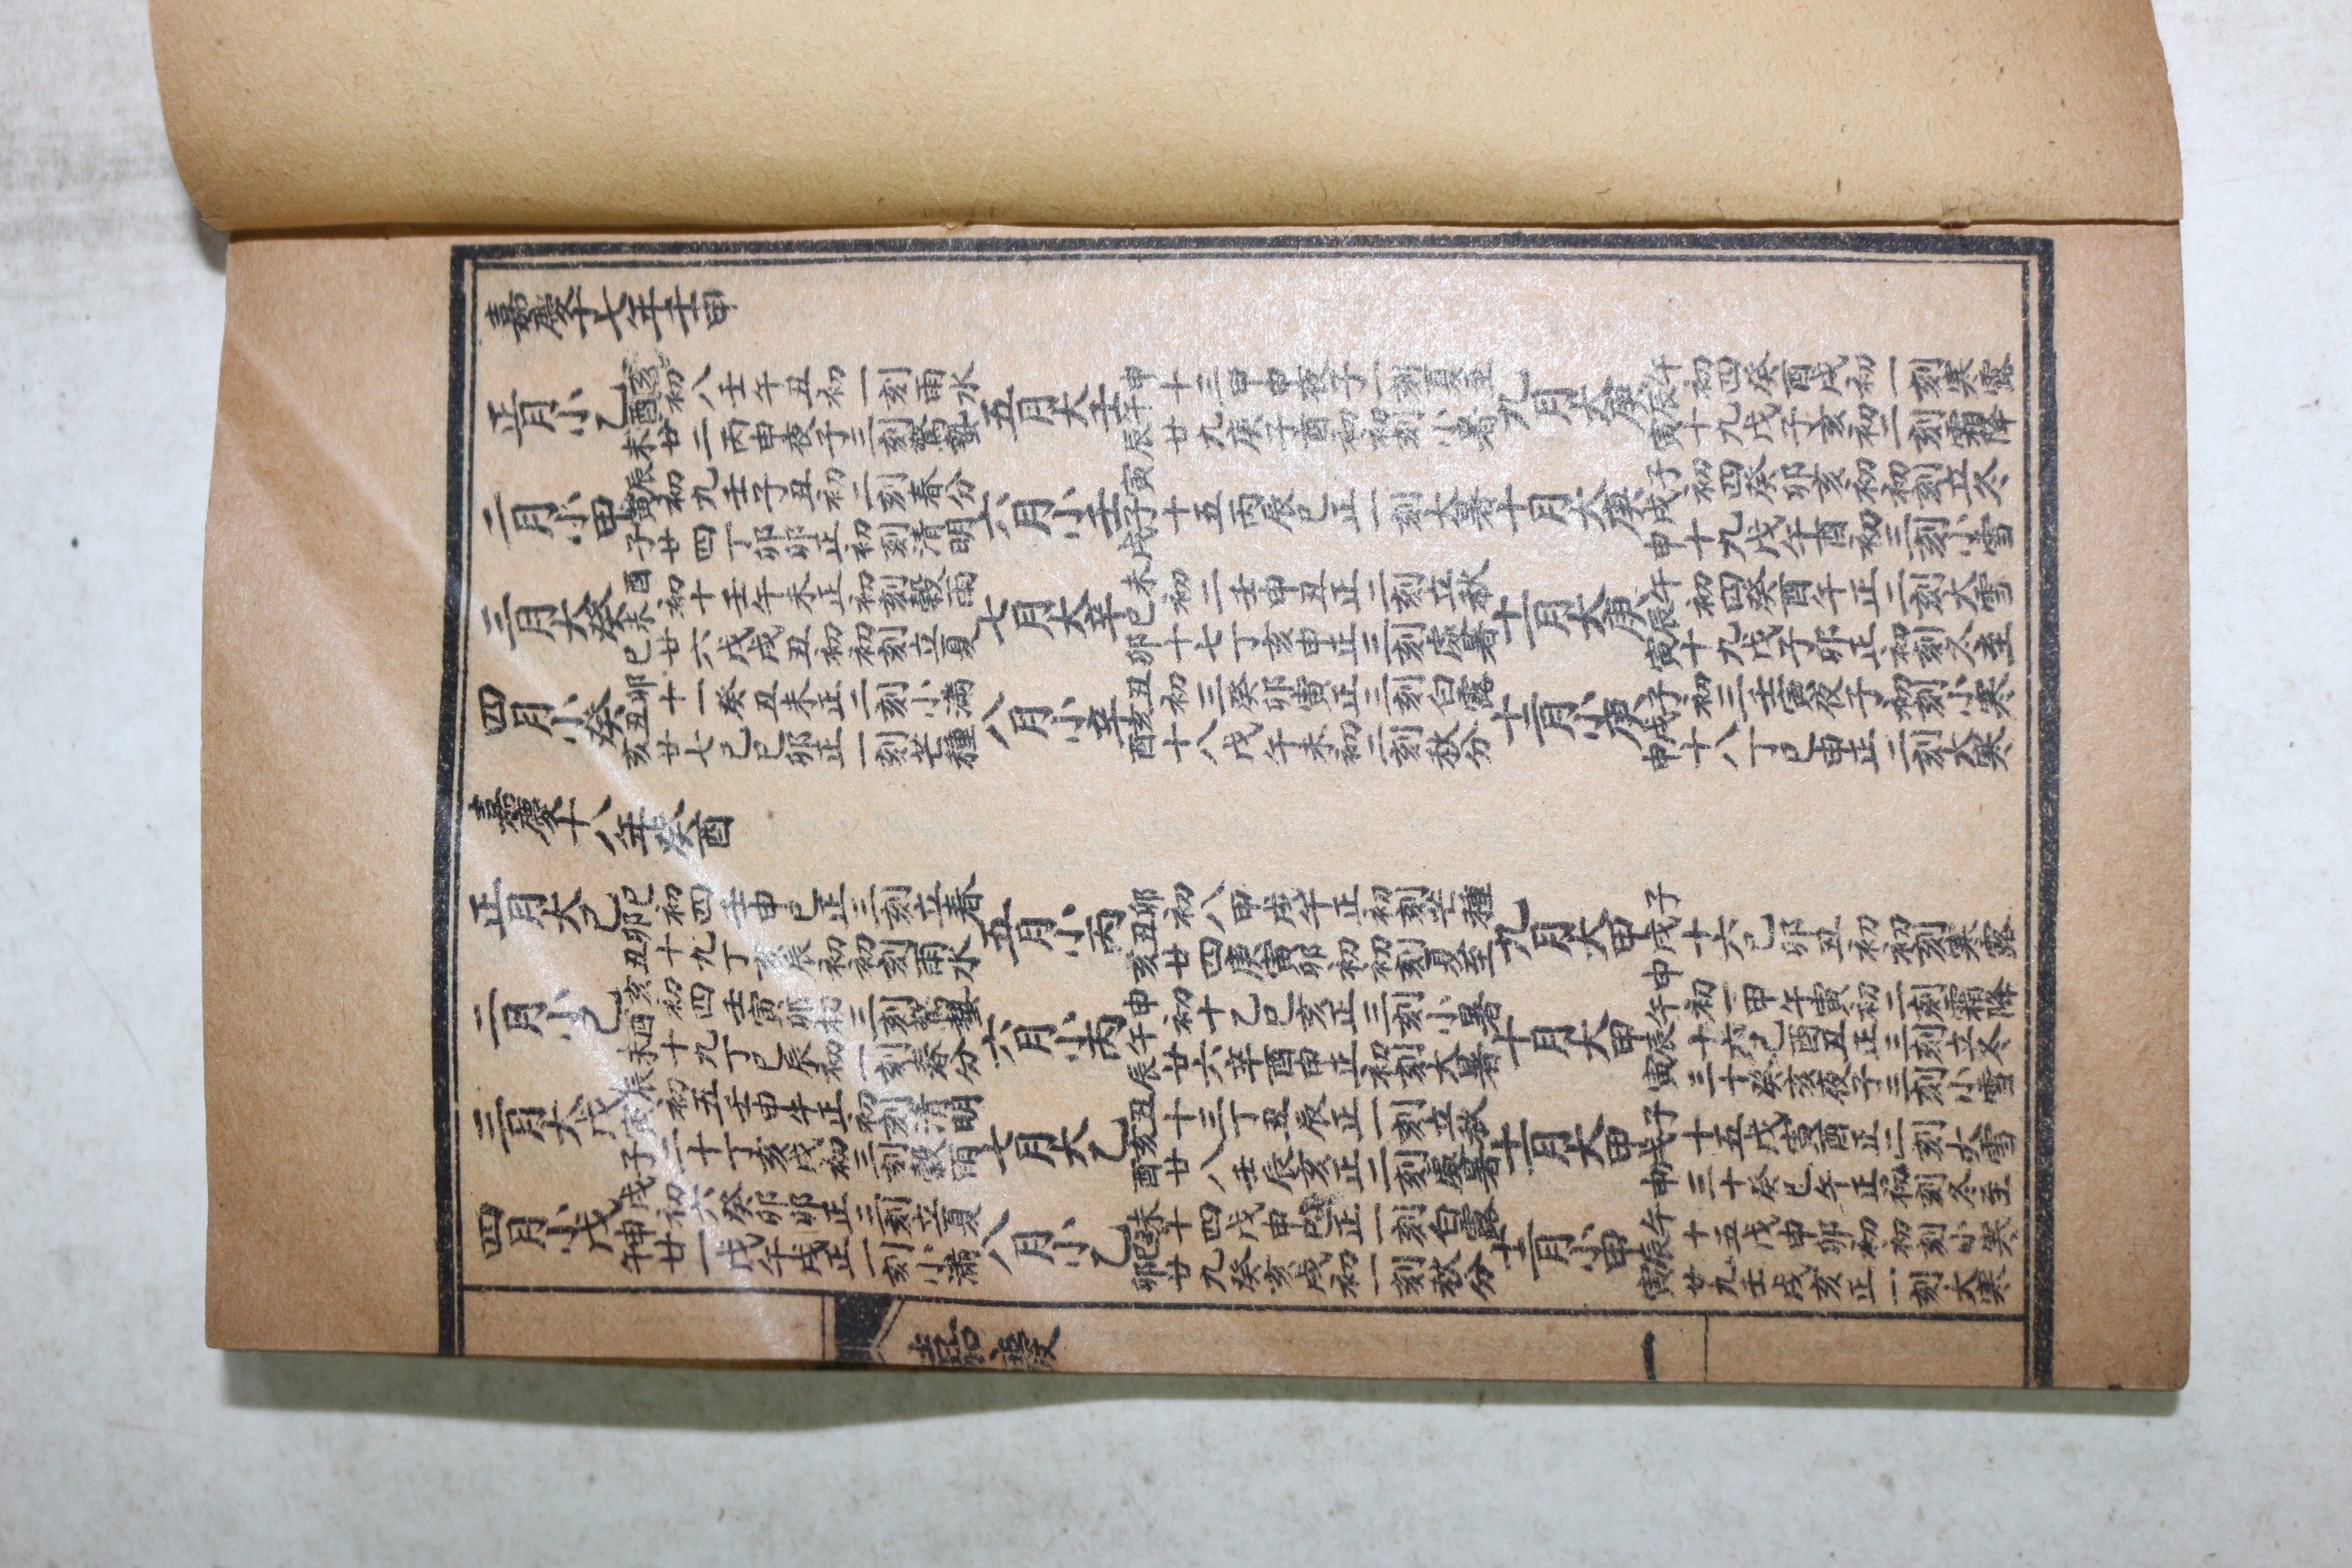 嘉慶十七年壬申
正月小乙亥酉未 初八壬午丑初一刻雨水
廿二丙申夜子三刻驚蟄
五月大壬申午辰 十三甲申夜子一刻夏至
廿九庚子酉初初刻小暑
九月大庚午辰寅 初四癸酉戌初一刻寒露
十九戊子亥初二刻霜降
二月小甲辰寅子 初九壬子丑初二刻春分
廿四丁卯卯正初刻清明
六月小壬寅子戌 十五丙辰巳正一刻大暑
十月大庚子戌申 初四癸卯亥初初刻立冬
十九戊午酉初三刻小雪
三月大癸酉未巳 初十壬午未正初刻穀雨
廿六戊戌丑初初刻立夏
七月大辛未巳卯 初二壬申丑正二刻立秋
十七丁亥申正三刻處暑
十一月大庚午辰寅 初四癸酉午正三刻大雪
十九戊子卯正初刻冬至
四月小癸卯丑亥 十一癸丑未正二刻小滿
廿七己巳卯正一刻芒種
八月小辛丑亥酉 初三癸卯寅正三刻白露
十八戊午未初二刻秋分
十二月小庚子戌申 初三壬寅夜子初刻小寒
十八丁巳申正二刻大寒
嘉慶十八年癸酉
正月大己巳卯丑 初四壬申巳正三刻立春
十九丁亥辰初初刻雨水
五月小丙卯丑亥 初八甲戌午正初刻芒種
廿四庚寅卯初初刻夏至
九月大甲子戌申 十六己卯丑初初刻寒露
二月小己亥酉未 初四壬寅卯初三刻驚蟄
十九丁巳辰初一刻春分
六月小丙申午辰 初十乙巳亥正三刻小暑
廿六辛酉申正初刻大暑
十月大甲午辰寅 初一甲午寅初二刻霜降
十六己酉丑正三刻立冬
三十癸亥夜子三刻小雪
三月大戊辰寅子 初五壬申午正初刻清明
二十丁亥戌初三刻穀雨
七月大乙丑亥酉 十三丁丑辰正一刻立秋
廿八壬辰亥正二刻處暑
十一月大甲子戌申 十五戊寅酉正二刻大雪
三十癸巳午正初刻冬至
四月小戊戌申午 初六癸卯卯正三刻立夏
廿一戊午戌正一刻小滿
八月小乙未巳卯 十四戊申巳正一刻白露
廿九癸亥戌初一刻秋分
十二月小甲午辰寅 十五戊申卯初初刻小寒
廿九壬戌亥正一刻大寒
嘉慶 一